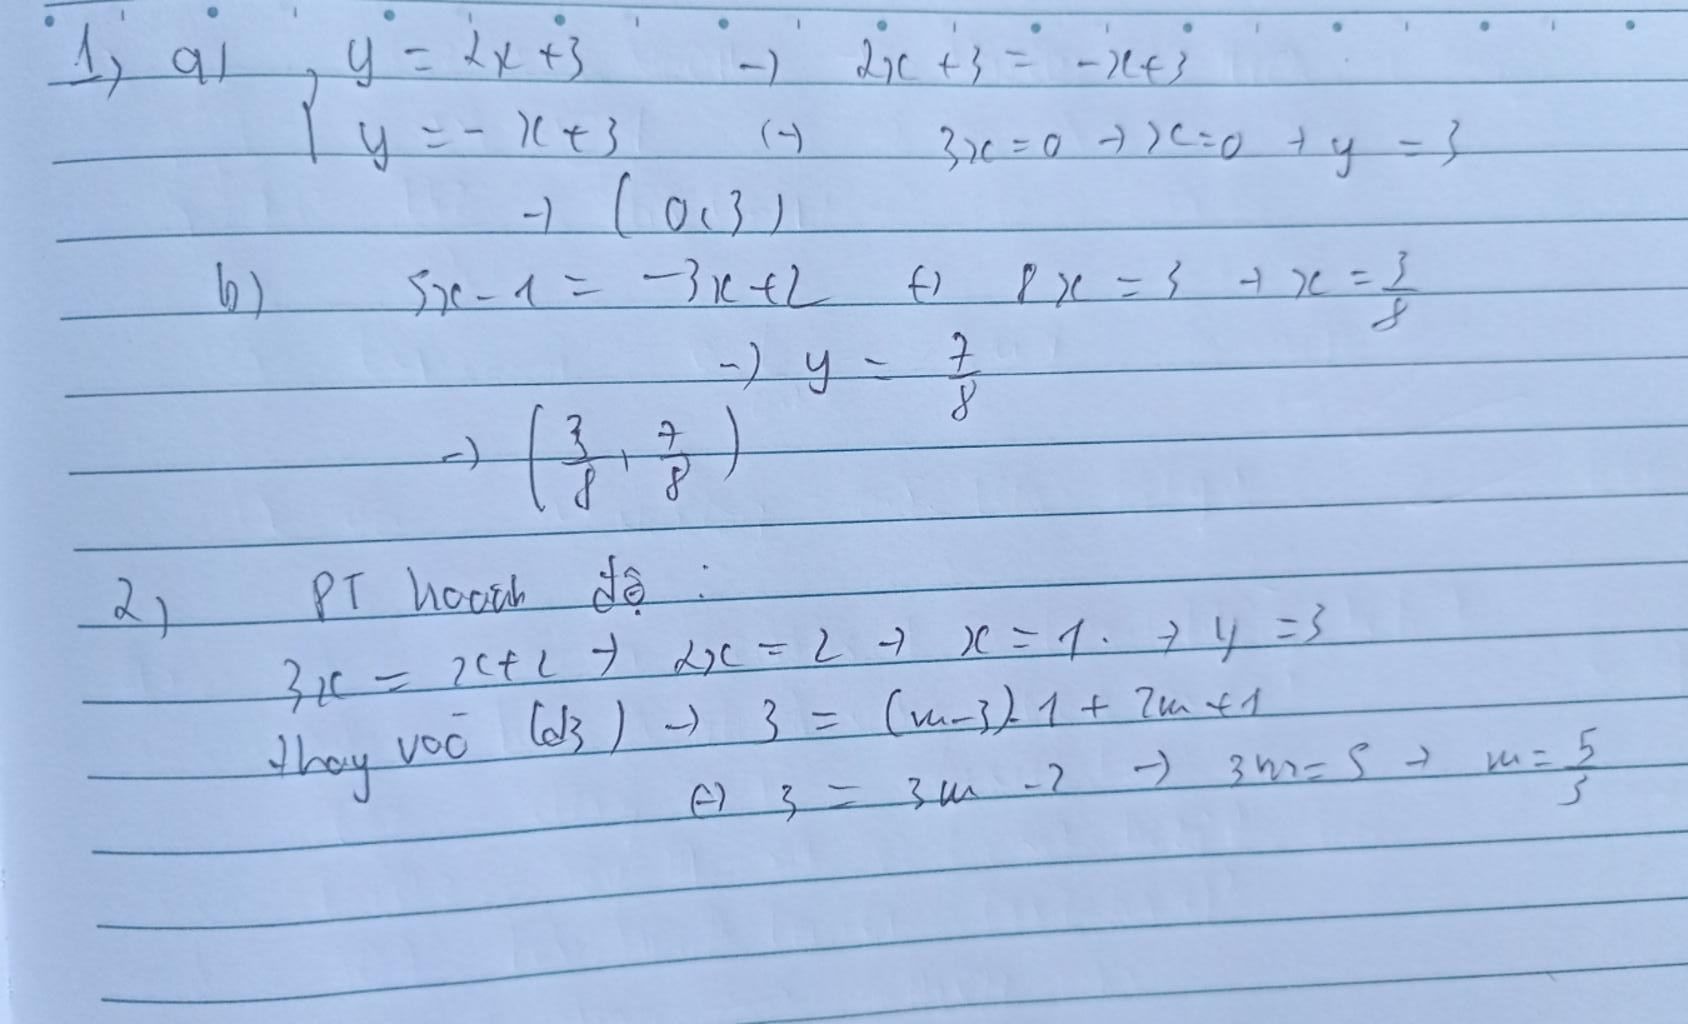 1) a) { y = 2x + 3 → 2x + 3 = -x + 3
y = -x + 3 (→) 3x = 0 → x = 0 → y = 3
→ (0; 3)
b) 5x - 1 = -3x + 2 (→) 8x = 3 → x = 3/8
→ y = 7/8
→ (3/8, 7/8)
2) PT hoành độ :
3x = x + 2 → 2x = 2 → x = 1. → y = 3
thay vào (d3) → 3 = (m-3).1 + 2m + 1
(→) 3 = 3m - 2 → 3m = 5 → m = 5/3